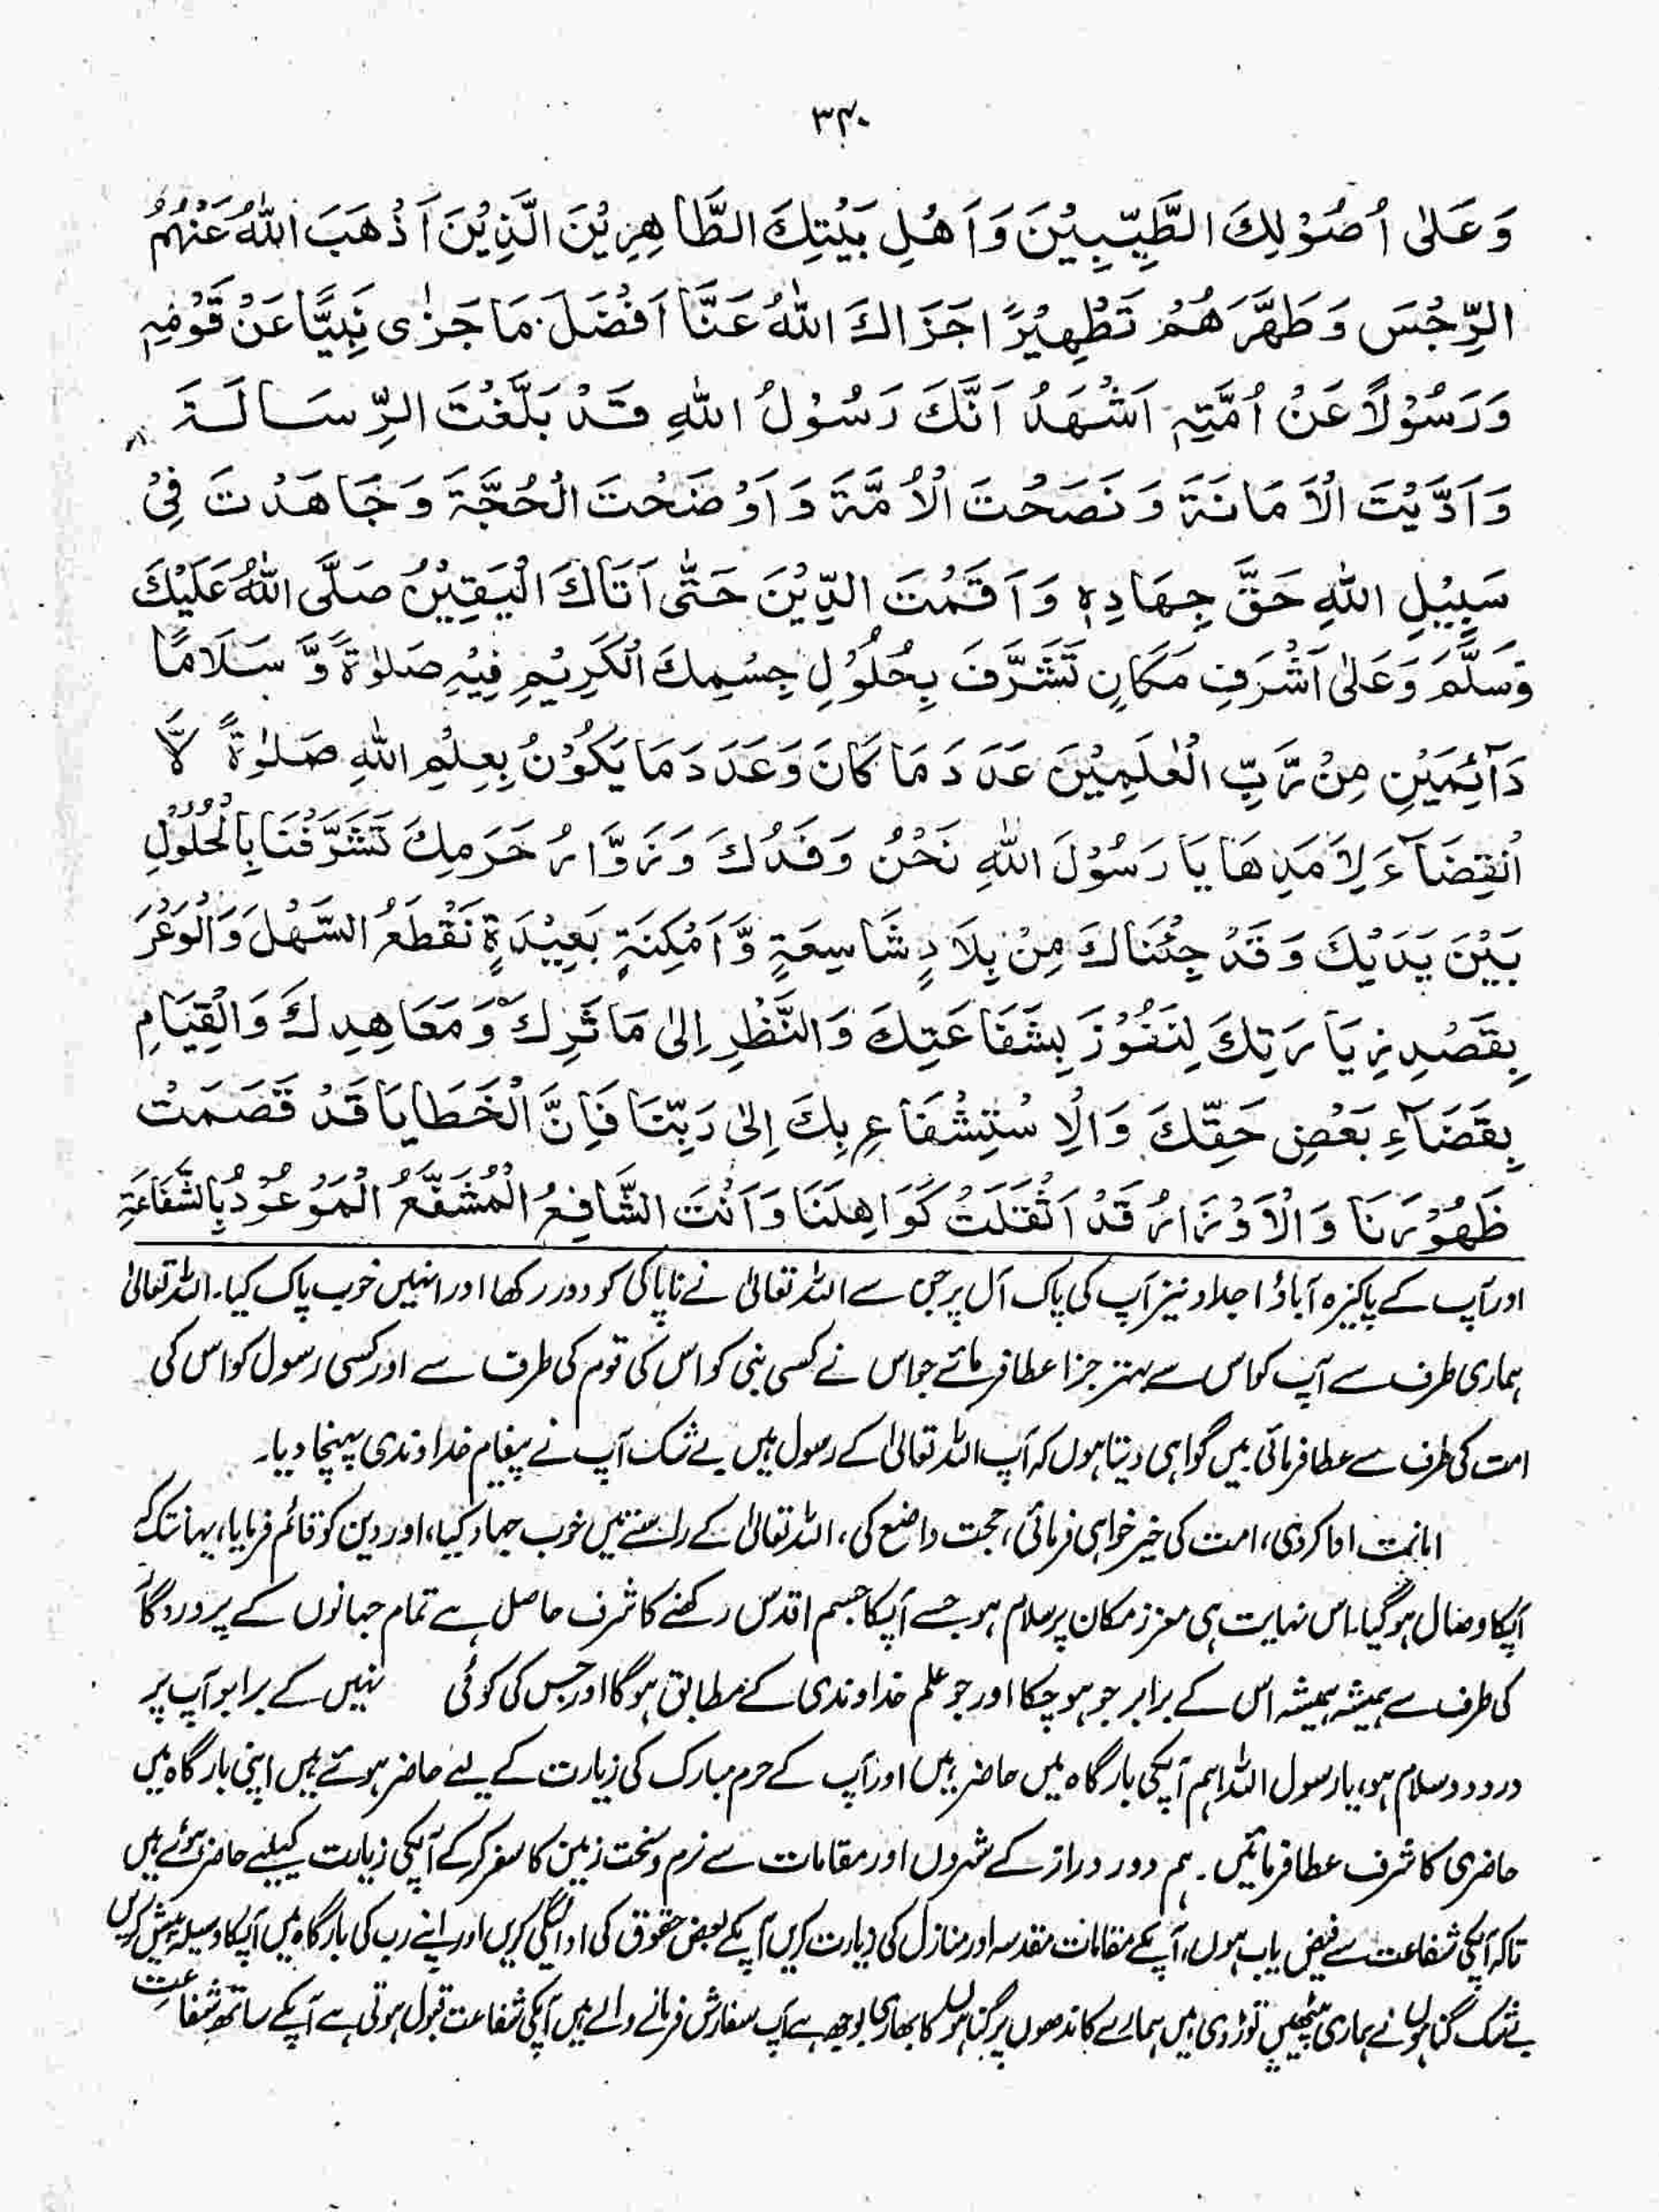 ۳۴۰
وَعَلٰى اُصُوْلِكَ الطَّيِّبِيْنَ وَاَهْلِ بَيْتِكَ الطَّاهِرِيْنَ الَّذِيْنَ اَذْهَبَ اللهُ عَنْهُمُ
الرِّجْسَ وَطَهَّرَهُمْ تَطْهِيْرًا جَزَاكَ اللهُ عَنَّا اَفْضَلَ مَا جَزٰى نَبِيًّا عَنْ قَوْمِهٖ
وَرَسُوْلًا عَنْ اُمَّتِهٖ اَشْهَدُ اَنَّكَ رَسُوْلُ اللهِ قَدْ بَلَّغْتَ الرِّسَالَةَ
وَاَدَّيْتَ الْاَمَانَةَ وَنَصَحْتَ الْاُمَّةَ وَاَوْضَحْتَ الْحُجَّةَ وَجَاهَدْتَ فِيْ
سَبِيْلِ اللهِ حَقَّ جِهَادِهٖ وَاَقَمْتَ الدِّيْنَ حَتّٰى اَتَاكَ الْيَقِيْنُ صَلَّى اللهُ عَلَيْكَ
وَسَلَّمَ وَعَلٰى اَشْرَفِ مَكَانٍ تَشَرَّفَ بِحُلُوْلِ جِسْمِكَ الْكَرِيْمِ فِيْهِ صَلٰوةً وَّ سَلَامًا
دَآئِمَيْنِ مِنْ رَّبِّ الْعٰلَمِيْنَ عَدَدَ مَا كَانَ وَعَدَدَ مَا يَكُوْنُ بِعِلْمِ اللهِ صَلٰوةً لَّا
اَنْقِضَآءَ لِاَمَدِهَا يَا رَسُوْلَ اللهِ نَحْنُ وَفَدُكَ وَزَوَّارُ حَرَمِكَ تَشَرَّفْنَا بِالْحُلُوْلِ
بَيْنَ يَدَيْكَ وَقَدْ جِئْنَاكَ مِنْ بِلَادٍ شَاسِعَةٍ وَّاَمْكِنَةٍ بَعِيْدَةٍ نَقْطَعُ السَّهْلَ وَالْوَعْرَ
بِقَصْدِ زِيَارَتِكَ لِنَفُوْزَ بِشَفَاعَتِكَ وَالنَّظْرِ اِلٰى مَاٰثَرِكَ وَمَعَاهِدِكَ وَالْقِيَامِ
بِقَضَآءِ بَعْضِ حَقِّكَ وَالْاِسْتِشْفَاعِ بِكَ اِلٰى رَبِّنَا فَاِنَّ الْخَطَايَا قَدْ قَصَمَتْ
ظَهُوْرَنَا وَالْاَوْزَارُ قَدْ اَثْقَلَتْ كَوَاهِلَنَا وَاَنْتَ الشَّافِعُ الْمُشَفَّعُ الْمَوْعُوْدُ بِالشَّفَاعَةِ
اورآپ کے پاکیزہ آباؤ اجداد نیز آپ کی پاک آل پر جن سے اللہ تعالیٰ نے ناپاکی کو دور رکھا اور انہیں خوب پاک کیا۔ اللہ تعالیٰ
ہماری طرف سے آپ کو اس سے بہتر جزا عطا فرمائے جو اس نے کسی نبی کو اس کی قوم کی طرف سے اور کسی رسول کو اس کی
امت کی طرف سے عطا فرمائی۔ میں گواہی دیتا ہوں کہ آپ اللہ تعالیٰ کے رسول ہیں بے شک آپ نے پیغام خداوندی پہنچا دیا۔
امانت ادا کر دی، امت کی خیر خواہی فرمائی، حجت واضع کی، اللہ تعالیٰ کے راستے میں خوب جہاد کیا، اور دین کو قائم فرمایا، یہانتک کہ
آپکا وصال ہوگیا۔ اس نہایت ہی معزز مکان پر سلام ہو جسے آپکا جسم اقدس رکھنے کا شرف حاصل ہے تمام جہانوں کے پروردگار
کی طرف سے ہمیشہ ہمیشہ اس کے برابر جو ہو چکا اور جو علم خداوندی کے مطابق ہوگا اور جس کی کوئی نہیں کے برابر آپ پر
درود و سلام ہو، یا رسول اللہ! ہم آپکی بارگاہ میں حاضر ہیں اور آپ کے حرم مبارک کی زیارت کے لیے حاضر ہوئے ہیں اپنی بارگاہ میں
حاضری کا شرف عطا فرمائیں۔ ہم دور دراز کے شہروں اور مقامات سے نرم و سخت زمین کا سفر کر کے آپکی زیارت کیلیے حاضر ہوئے ہیں
تاکہ آپکی شفاعت سے فیض یاب ہوں، آپکے مقامات مقدسہ اور منازل کی زیارت کریں آپکے بعض حقوق کی ادائیگی کریں اور اپنے رب کی بارگاہ میں آپکا وسیلہ پیش کریں
بے شک گناہوں نے ہماری پیٹھیں توڑ دی ہیں ہمارے کاندھوں پر گناہوں کا بھاری بوجھ ہے آپ سفارش فرمانے والے ہیں آپکی شفاعت قبول ہوتی ہے آپکے ساتھ شفاعت